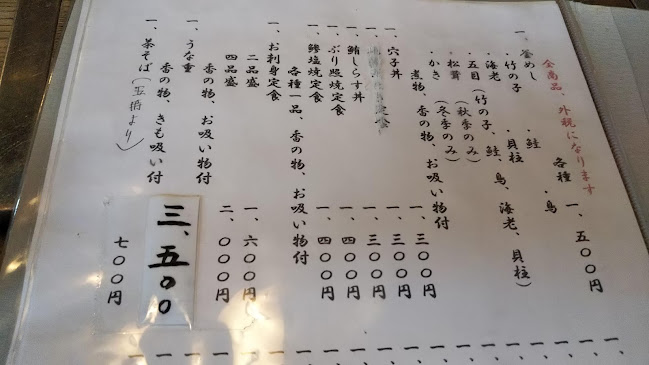 全商品、外税になります
一、釜めし 各種 一、五〇〇円
・竹の子 ・鮭 ・鳥
・海老 ・貝柱
・五目(竹の子、鮭、鳥、海老、貝柱)
・松茸(秋季のみ)
・かき(冬季のみ)
煮物、香の物、お吸い物付
一、穴子丼 一、三〇〇円
定食 一、三〇〇円
一、鮪しらす丼 一、三〇〇円
一、ぶり照焼定食 一、四〇〇円
一、鯵塩焼定食 一、四〇〇円
各種一品、香の物、お吸い物付
一、お刺身定食
二品盛 一、六〇〇円
四品盛 二、〇〇〇円
香の物、お吸い物付
一、うな重 三、五〇〇
香の物、きも吸い付
一、茶そば(五拾より) 七〇〇円